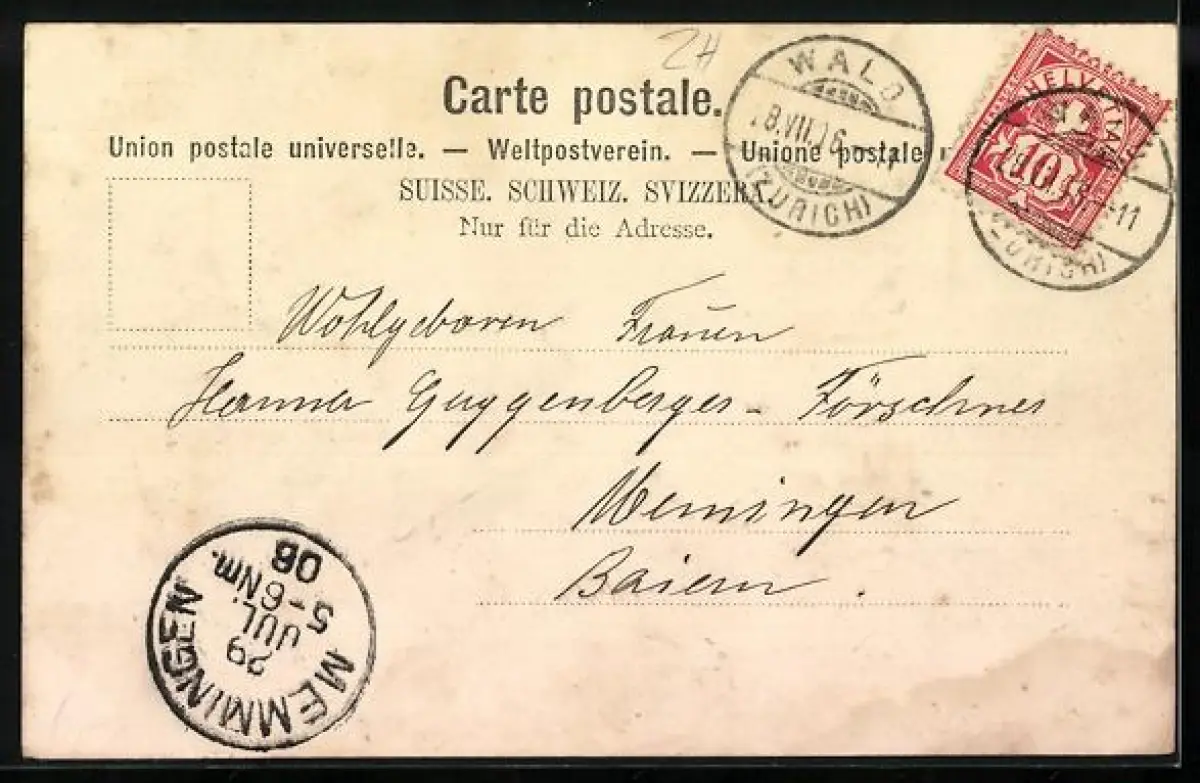 ZH
Carte postale.
Union postale universelle. — Weltpostverein. — Unione postale
SUISSE. SCHWEIZ. SVIZZERA.
Nur für die Adresse.
WALD
(ZÜRICH)
HELVETIA
10
-11
(ZÜRICH)
Wohlgeboren Frauen
Hanna Guggenberger - Förschner
Memingen
Baiern.
MEMMINGEN
29
JUL.
5-6Nm.